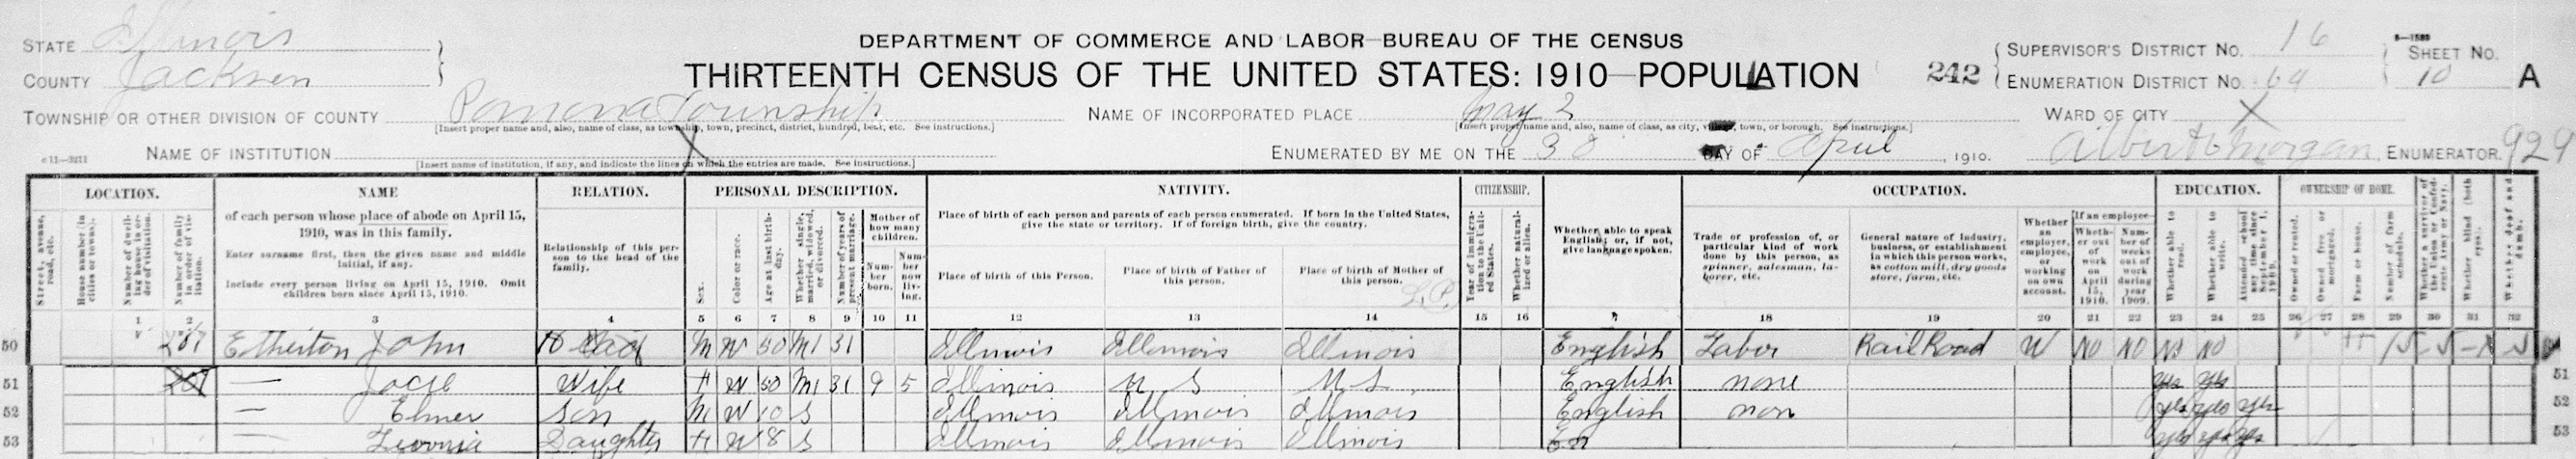 STATE Illinois
COUNTY Jackson
DEPARTMENT OF COMMERCE AND LABOR—BUREAU OF THE CENSUS
THIRTEENTH CENSUS OF THE UNITED STATES: 1910—POPULATION
242
SUPERVISOR'S DISTRICT NO. 16
ENUMERATION DISTRICT NO. 64
SHEET NO. 10 A
TOWNSHIP OR OTHER DIVISION OF COUNTY Pomona Township
[Insert proper name and, also, name of class, as township, town, precinct, district, hundred, beat, etc. See instructions.]
NAME OF INCORPORATED PLACE May 2
[Insert proper name and, also, name of class, as city, village, town, or borough. See instructions.]
WARD OF CITY X
NAME OF INSTITUTION X
[Insert name of institution, if any, and indicate the lines on which the entries are made. See instructions.]
ENUMERATED BY ME ON THE 30 DAY OF April, 1910. Albert Morgan, ENUMERATOR. 929
LOCATION. NAME RELATION. PERSONAL DESCRIPTION. NATIVITY. CITIZENSHIP. OCCUPATION. EDUCATION. OWNERSHIP OF HOME.
Street, avenue, road, etc.
House number (in cities or towns).
Number of dwelling house in order of visitation.
Number of family in order of visitation.
of each person whose place of abode on April 15, 1910, was in this family.
Enter surname first, then the given name and middle initial, if any.
Include every person living on April 15, 1910. Omit children born since April 15, 1910.
Relationship of this person to the head of the family.
Sex.
Color or race.
Age at last birthday.
Whether single, married, widowed, or divorced.
Number of years of present marriage.
Mother of how many children.
Number born.
Number now living.
Place of birth of each person and parents of each person enumerated. If born in the United States, give the state or territory. If of foreign birth, give the country.
Place of birth of this Person.
Place of birth of Father of this person.
Place of birth of Mother of this person.
Year of immigration to the United States.
Whether naturalized or alien.
Whether able to speak English; or, if not, give language spoken.
Trade or profession of, or particular kind of work done by this person, as spinner, salesman, laborer, etc.
General nature of industry, business, or establishment in which this person works, as cotton mill, dry goods store, farm, etc.
Whether an employer, employee, or working on own account.
If an employee—
Whether out of work on April 15, 1910.
Number of weeks out of work during year 1909.
Whether able to read.
Whether able to write.
Attended school any time since September 1, 1909.
Owned or rented.
Owned free or mortgaged.
Farm or house.
Number of farm schedule.
Whether a survivor of the Union or Confederate Army or Navy.
Whether blind (both eyes).
Whether deaf and dumb.
1 2 3 4 5 6 7 8 9 10 11 12 13 14 15 16 18 19 20 21 22 23 24 25 26 27 28 29 30 31 32
50 Etherton John Head M W 50 M1 31 Illinois Illinois Illinois English Labor RailRoad W NO NO No NO
51 — Wife F W 50 M1 31 9 5 Illinois U S U S English none yes yes 51
52 — Elmer Son M W 10 S Illinois Illinois Illinois English non yes yes yes 52
53 — Daughter F W 8 S Illinois Illinois Illinois En yes yes yes 53